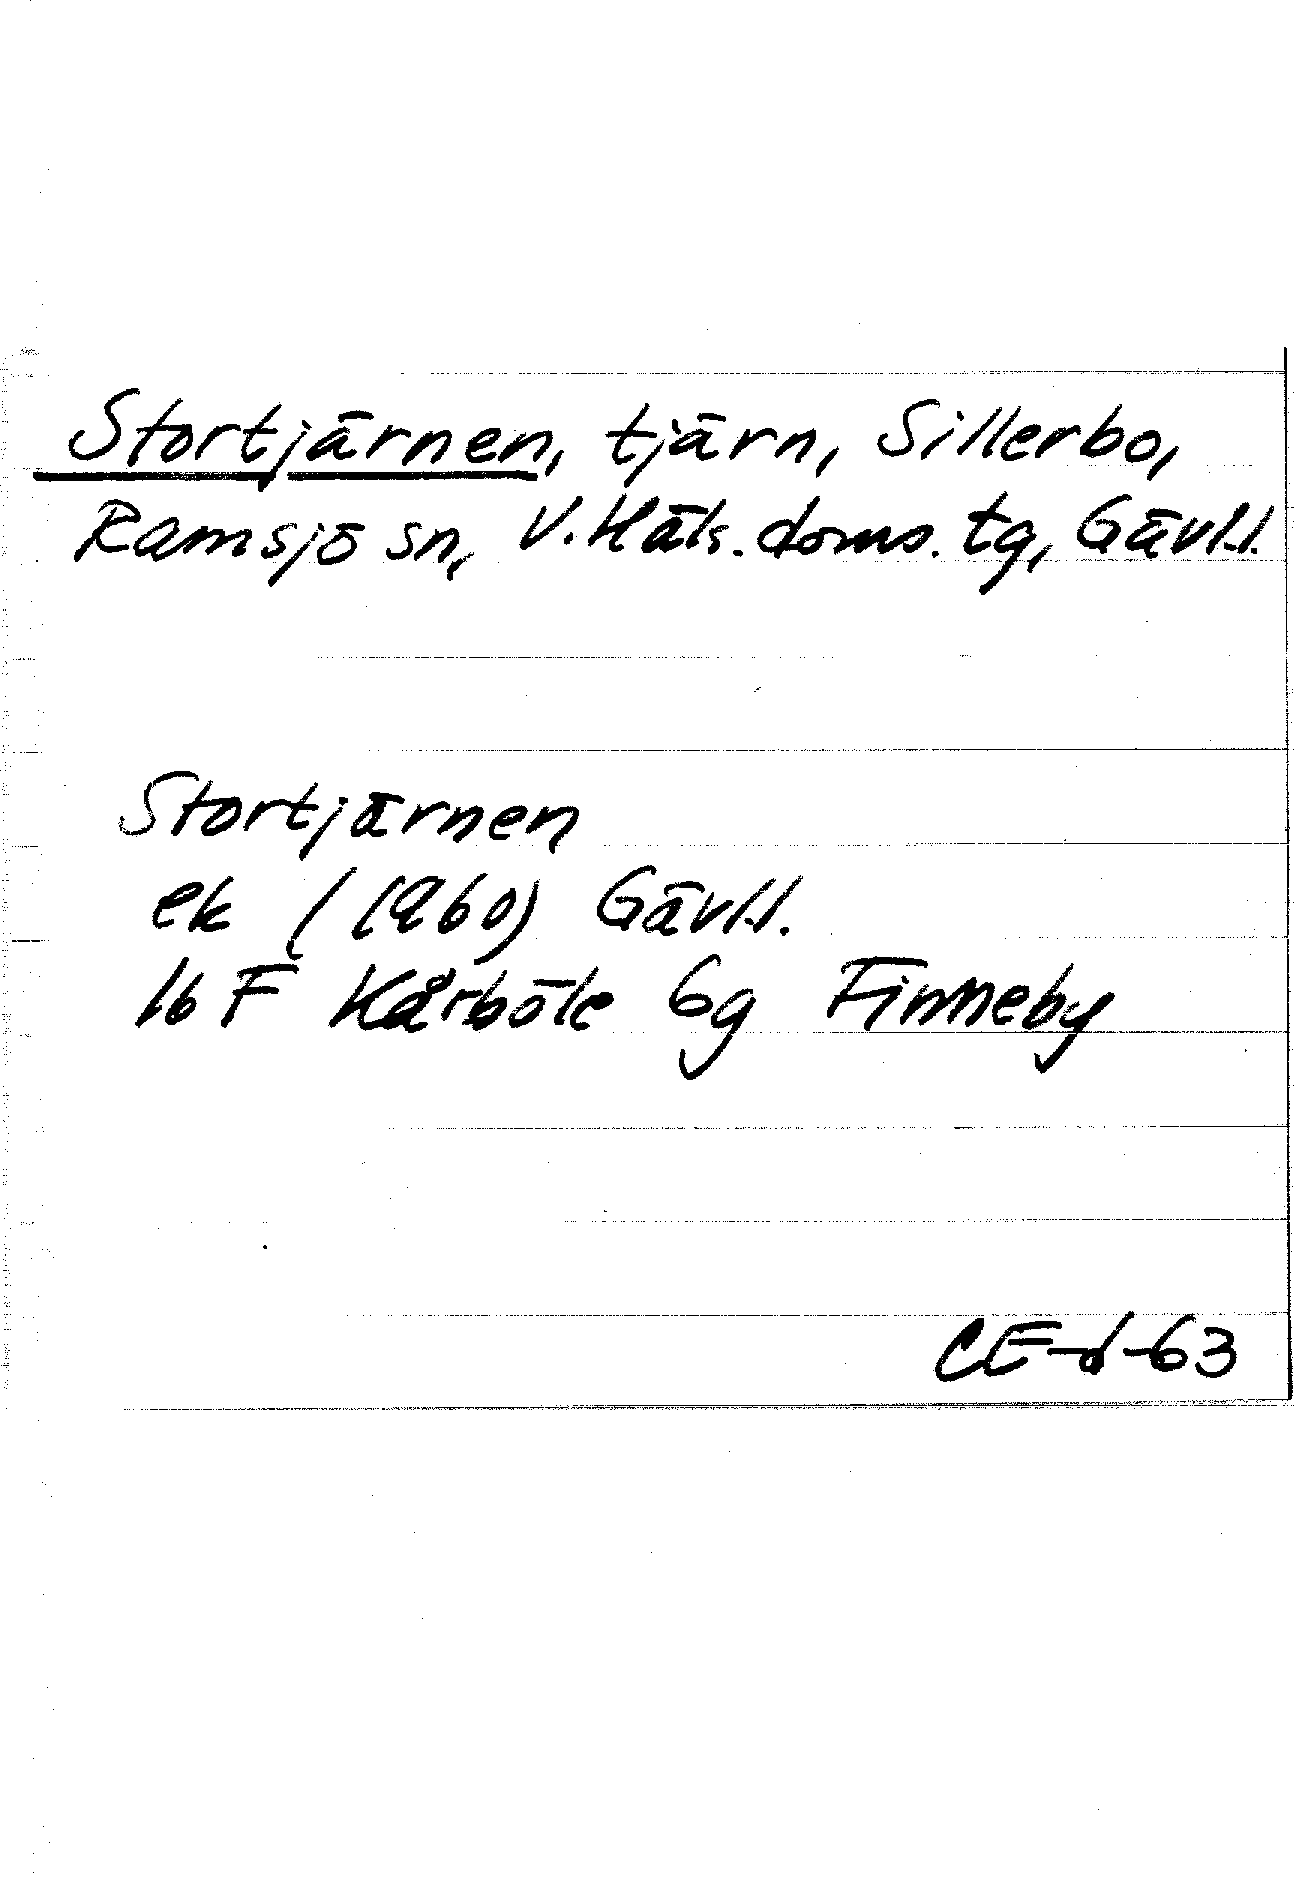 Stortjärnen, tjärn, Sillerbo,
Ramsjö sn, V. Häls. doms. tg, Gävl.l.
Stortjärnen
ek (1960) Gävl.l.
16 F Kårböle 6g Finneby
CE-d-63